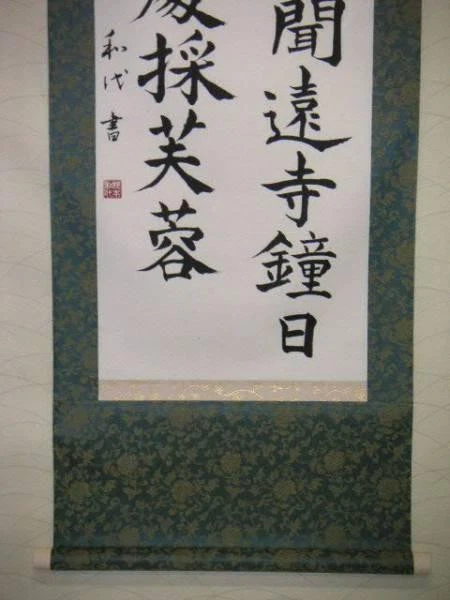 聞遠寺鐘日
採芙蓉
和代書